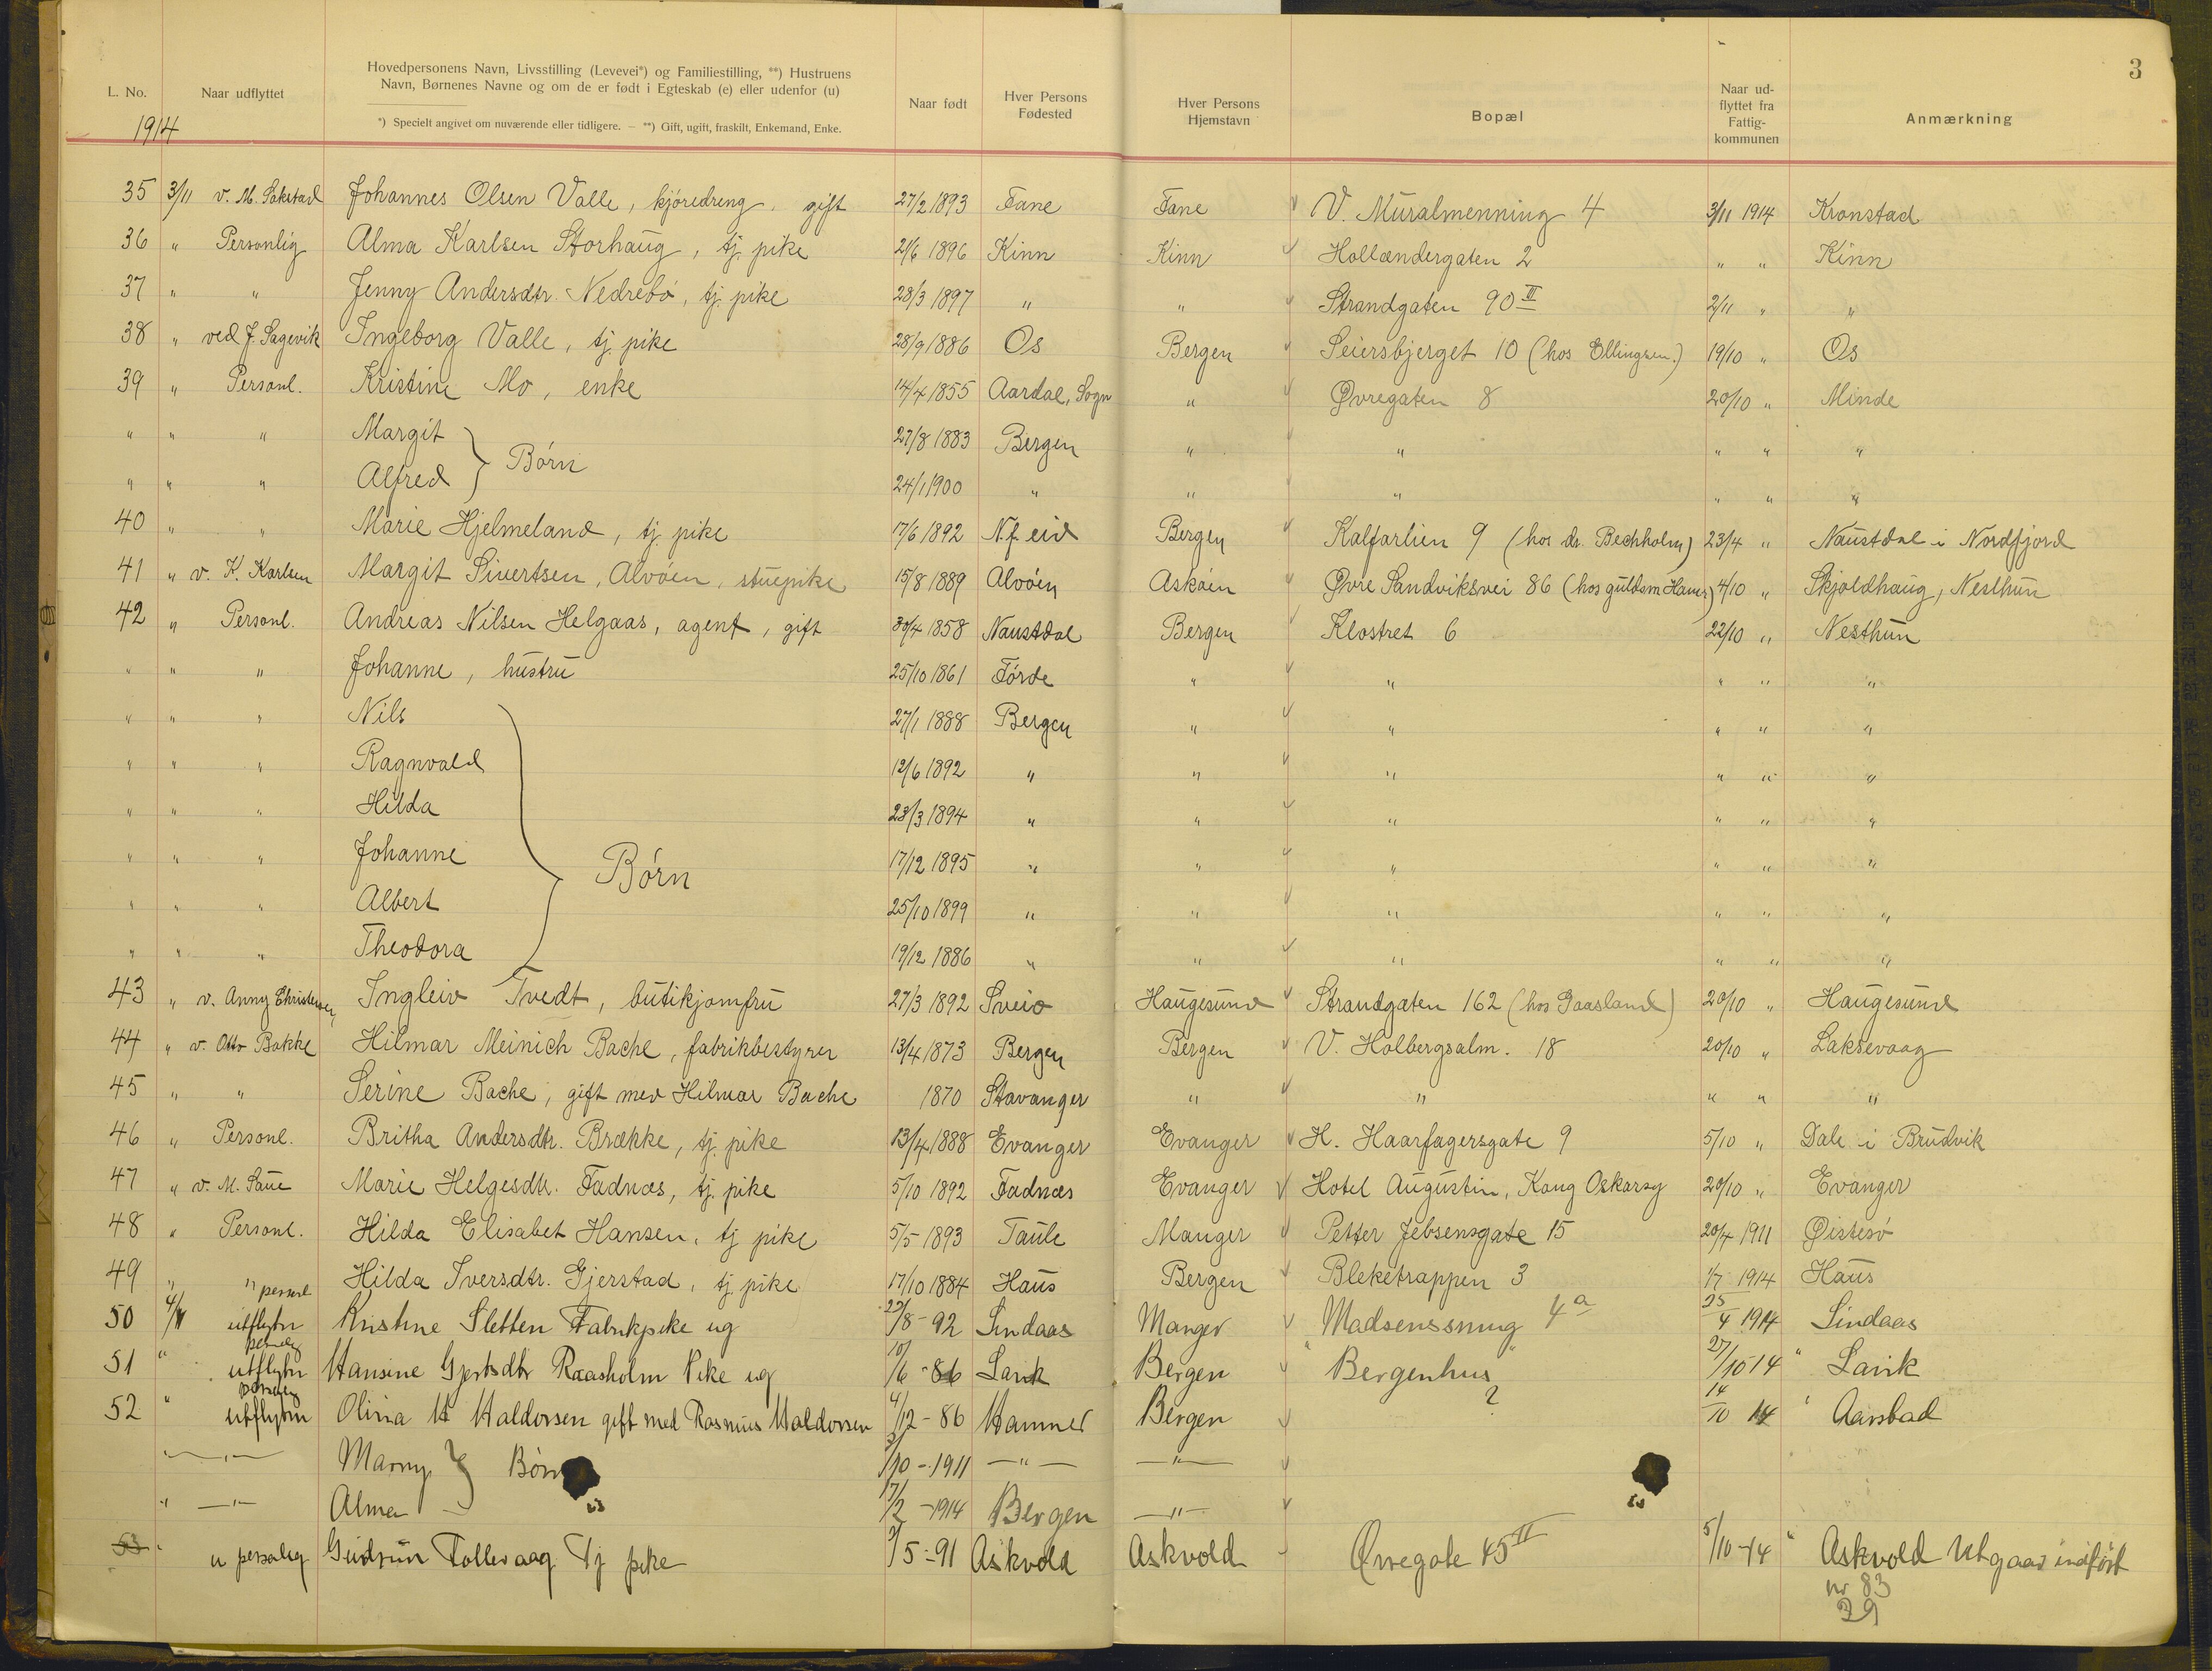 3
L. No. Naar udflyttet Hovedpersonens Navn, Livsstilling (Levevei*) og Familiestilling, **) Hustruens Navn, Børnenes Navne og om de er født i Egteskab (e) eller udenfor (u) Naar født Hver Persons Fødested Hver Persons Hjemstavn Bopæl Naar udflyttet fra Fattigkommunen Anmærkning
*) Specielt angivet om nuværende eller tidligere. — **) Gift, ugift, fraskilt, Enkemand, Enke.
1914
35 3/11 v. M. Sakstad Johannes Olsen Valle, kjöredreng, gift 27/2 1893 Fane Fane V. Muralmenning 4 3/11 1914 Kronstad
36 " Personlig Alma Karlsen Storhaug, tj. pike 2/6 1896 Kinn Kinn Hollændergaten 2 " " Kinn
37 " " Jenny Andersdtr. Nedrebö, tj. pike 28/3 1897 " " Strandgaten 90 III 2/11 " "
38 " ved J. Sagevik Ingeborg Valle, tj. pike 28/9 1886 Os Bergen Seiersbjerget 10 (hos Ellingsen.) 19/10 " Os
39 " Personl. Kristine Mo, enke 14/4 1855 Aardal, Sogn " Øvregaten 8 20/10 " Minde
" " " Margit 27/8 1883 Bergen " " " " "
Börn
" " " Alfred 24/1 1900 " " " " " "
40 " " Marie Hjelmeland, tj. pike 17/6 1892 N.f. eid Bergen Kalfarlien 9 (hos dr. Bechholm) 23/4 " Naustdal i Nordfjord
41 " v. K. Karlsen Margit Sivertsen, Alvöen, stuepike 15/8 1889 Alvöen Asköen Øvre Sandviksvei 86 (hos guldsm. ) 4/10 " Skjoldhaug, Nesthun
42 " Personl. Andreas Nilsen Helgaas, agent, gift 30/4 1858 Naustdal Bergen Klostret 6 22/10 " Nesthun
" " " Johanne, hustru 25/10 1861 Förde " " " " "
" " " Nils 27/1 1888 Bergen " " " " "
" " " Ragnvald 12/6 1892 " " " " " "
" " " Hilda 23/3 1894 " " " " " "
" " " Johanne 17/12 1895 " " " " " "
Börn
" " " Albert 25/10 1899 " " " " " "
" " " Theodora 19/12 1886 " " " " " "
43 " v. Anny Christensen, Ingleiv Tvedt, butikjomfru 27/3 1892 Sveio Haugesund Strandgaten 162 (hos Gaasland) 20/10 " Haugesund
44 " v. Otto Bakke Hilmar Meinich Bache, fabrikbestyrer 13/4 1873 Bergen Bergen V. Holbergsalm. 18 20/10 " Laksevaag
45 " " Serine Bache, gift med Hilmar Bache 1870 Stavanger " " " " "
46 " Personl. Britha Andersdtr. Brække, tj. pike 13/4 1888 Evanger Evanger H. Haarfagersgate 9 5/10 " Dale i Brudvik
47 " v. M. Saue Marie Helgesdtr. Fadnæs, tj. pike 5/10 1892 Fadnæs Evanger Hotel Augustin, Kong Oskarsg 20/10 " Evanger
48 " Personl. Hilda Elisabet Hansen, tj pike 5/5 1893 Taule Manger Petter Jebsensgate 15 20/4 1911 Øistesö
49 " " Hilda Iversdtr. Gjerstad, tj. pike 17/10 1884 Haus Bergen Bleketrappen 3 1/7 1914 Haus
50 4/11 utflytter Kristine Sletten Fabrikpike ug 22/8 - 92 Lindaas Manger Madsenssmug 4a 25/4 1914 Lindaas
51 " utflytter Hansine Raasholm Pike ug 10/6 - 86 Lavik Bergen " Bergenhus " 27/10 14 " Lavik
52 " utflytter Olina H Haldorsen gift med Rasmus Haldorsen 4/12 - 86 Hammer Bergen ? 14/10 14 "
— " — Marny Börn /10 - 1911 — " — — " —
" — " — Alma 17/2 - 1914 Bergen — " —
53 " u personlig Gudrun Follevaag Tj pike 9/5 - 91 Askvold Askvold Øvregate 45 II 5/10 - 14 " Askvold Utgaar indfört
nr 83
29